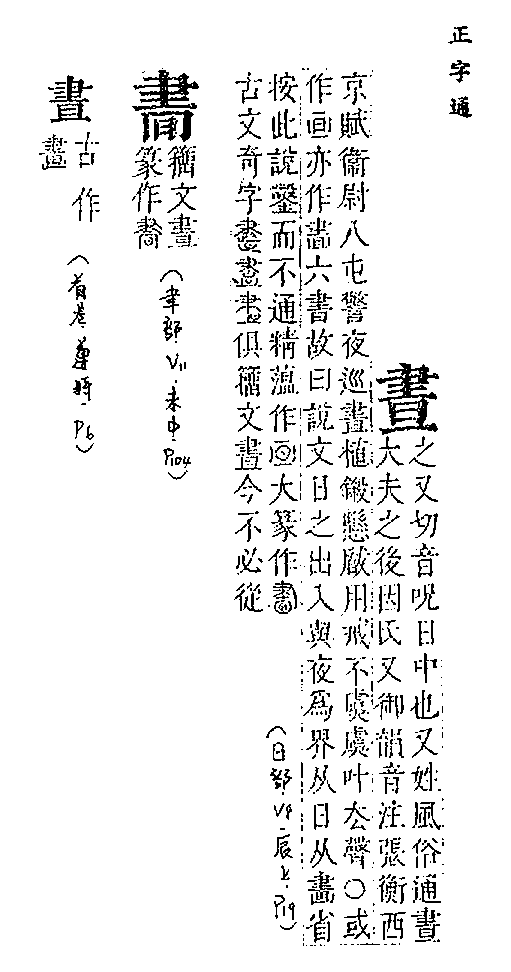 正字通
晝
之又切音呪日中也又姓風俗通晝
大夫之後因氏又御韻音注張衡西
京賦衞尉八屯警夜巡晝植鎩懸瞂用戒不虞虞叶去聲○或
作画亦作畵六書故曰說文日之出入與夜爲界从日从畵省
按此說鑿而不通精蘊作大篆作
古文奇字俱籒文晝今不必從
(日部V4-辰上-P19)
籒文晝
篆作
(聿部V11-未中-P104)
晝
古作
(首卷-P6)